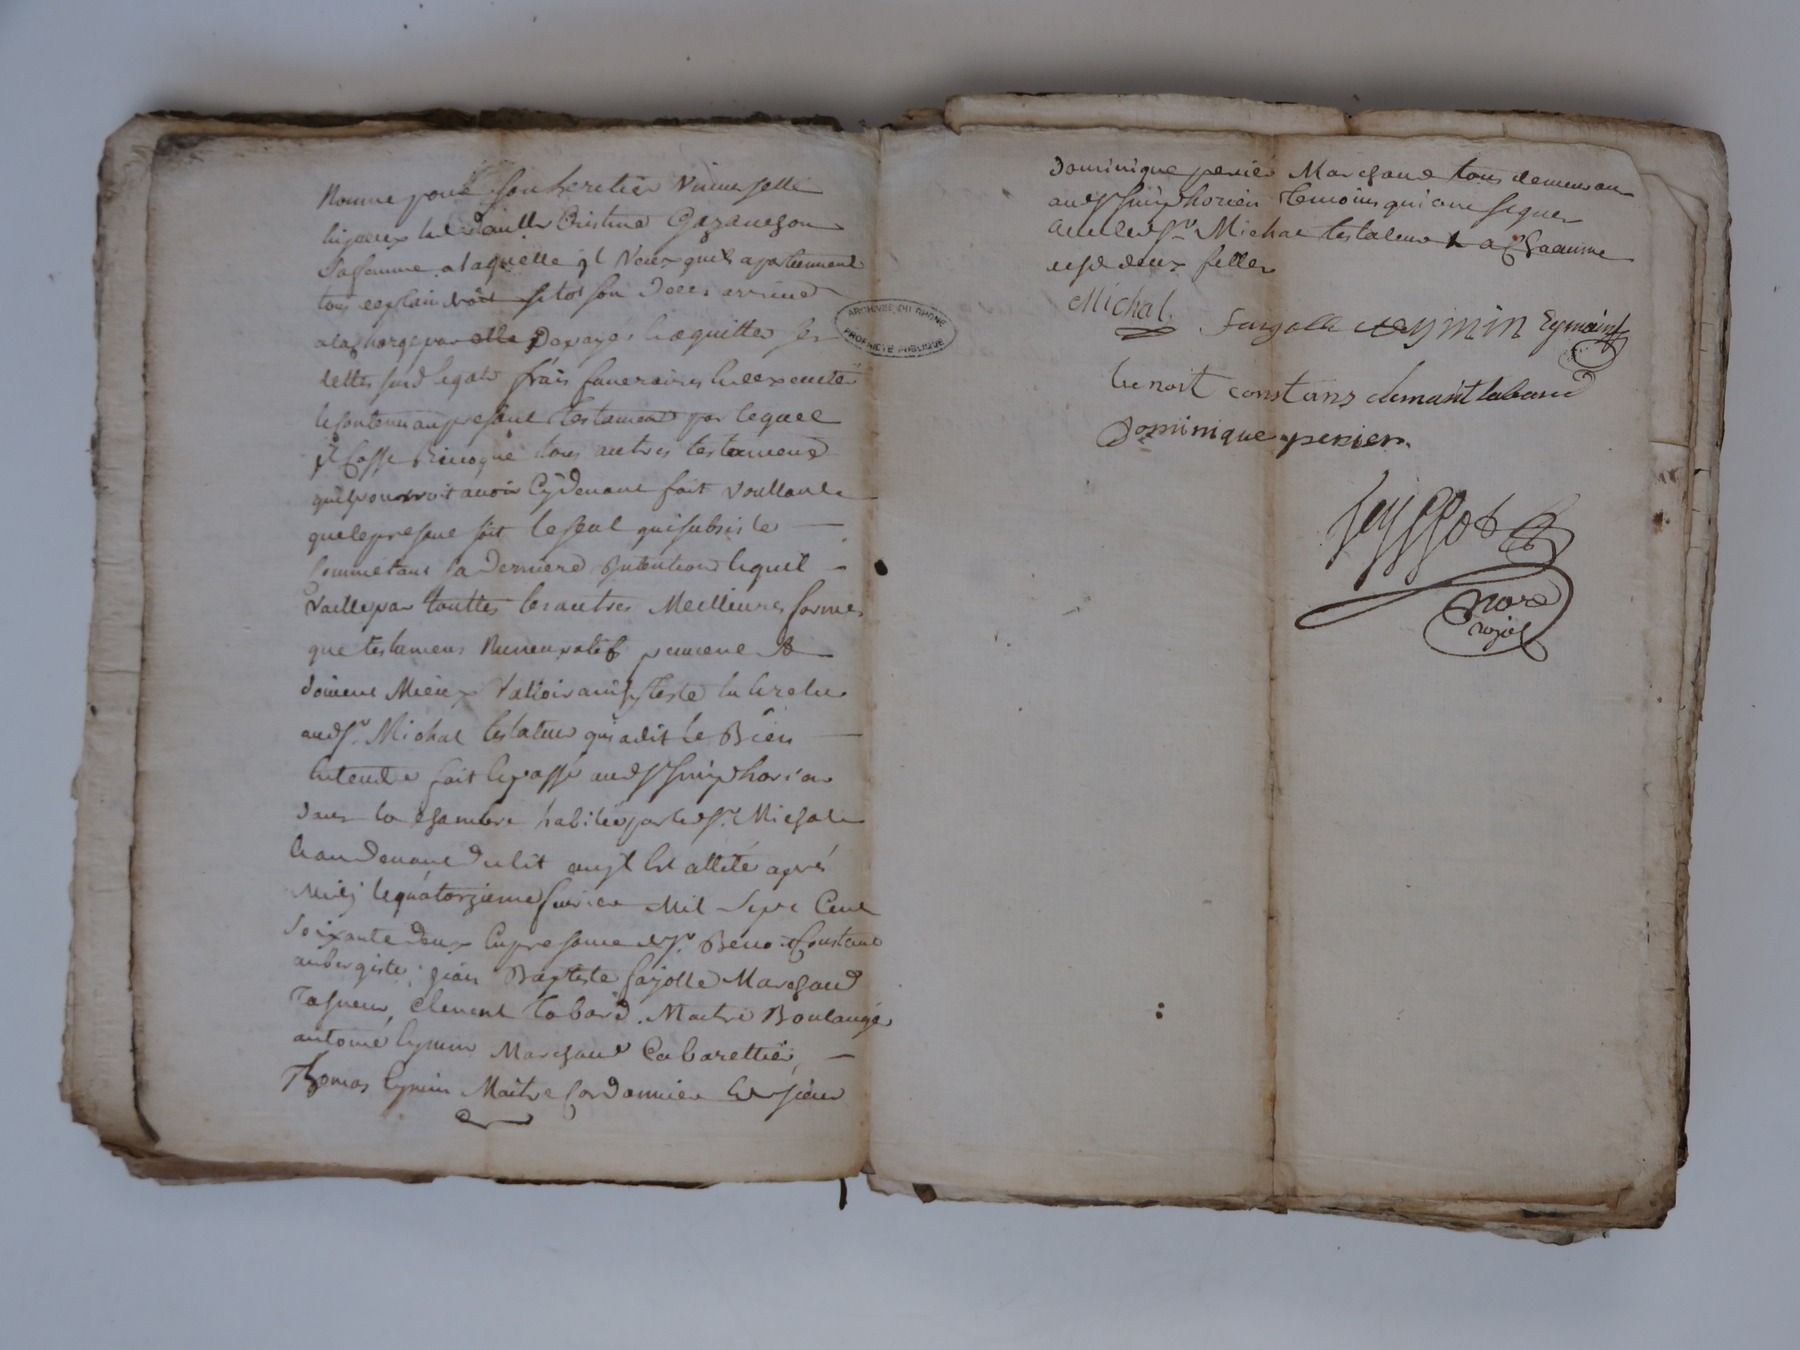 Nomme pour son heretiere Universelle
Cristine Gazanchon
Sa femme a laquelle yl Veux quil apartiennent
tout sitot son deces arrivé
a la charge par elle De payer et aquitter ses
dettes susd legats frais funeraires et executer
le contenu au present testament par lequel
yl Casse Revoque tous autres testamens
quil pourroit avoir Cydevant fait voullant
que le present soit le seul qui subsiste
Comme etant sa Derniere Intention lequel
Vaille par touttes les autres Meilleures formes
que testamens Nuncupatif peuvent et
doivent Mieux Valloir ainsy testé lu et relu
aud sr. Michal testateur qui a dit le Bien
entendre fait et passé aud st simphorien
dans la chambre habitée par led sr. Michal
et au devant du lit auql est allité aprés
Midy le quatorzieme fevrier Mil Sept Cent
Soixante deux En presence de sr. Benoit Constant
aubergiste, jean Baptiste fayolle Marchand
Clement Tabard. Maitre Boulangé
antoine Eymin Marchand Cabarettier,
Thomas Eymin Maitre Cordonnier et sieur
ARCHIVES DU RHONE
PROPRIÉTÉ PUBLIQUE
Dominique perier Marchand tous demeurant
aud st simphorien temoins qui ont signer
avec led sr. Michal testateur a Chacune
des deux
Michal. fayolle eymin Eymin
benoit constans clemant tabard
Dominique perier.
Nore
royal